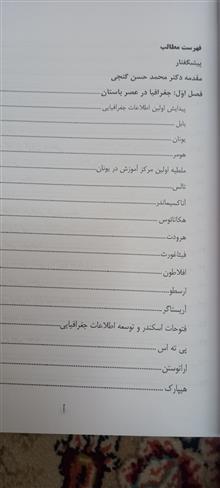 فهرست مطالب
پیشگفتار
مقدمه دکتر محمد حسن گنجی
فصل اوّل: جغرافیا در عصر باستان
پیدایش اولین اطلاعات جغرافیایی
بابل
یونان
هومر
ملطیه اولین مرکز آموزش در یونان
تالس
آناکسیماندر
هکاتائوس
هرودت
فیثاغورث
افلاطون
ارسطو
آریستاگر
فتوحات اسکندر و توسعه اطلاعات جغرافیایی
پی ته اس
اراتوستن
هیپارک